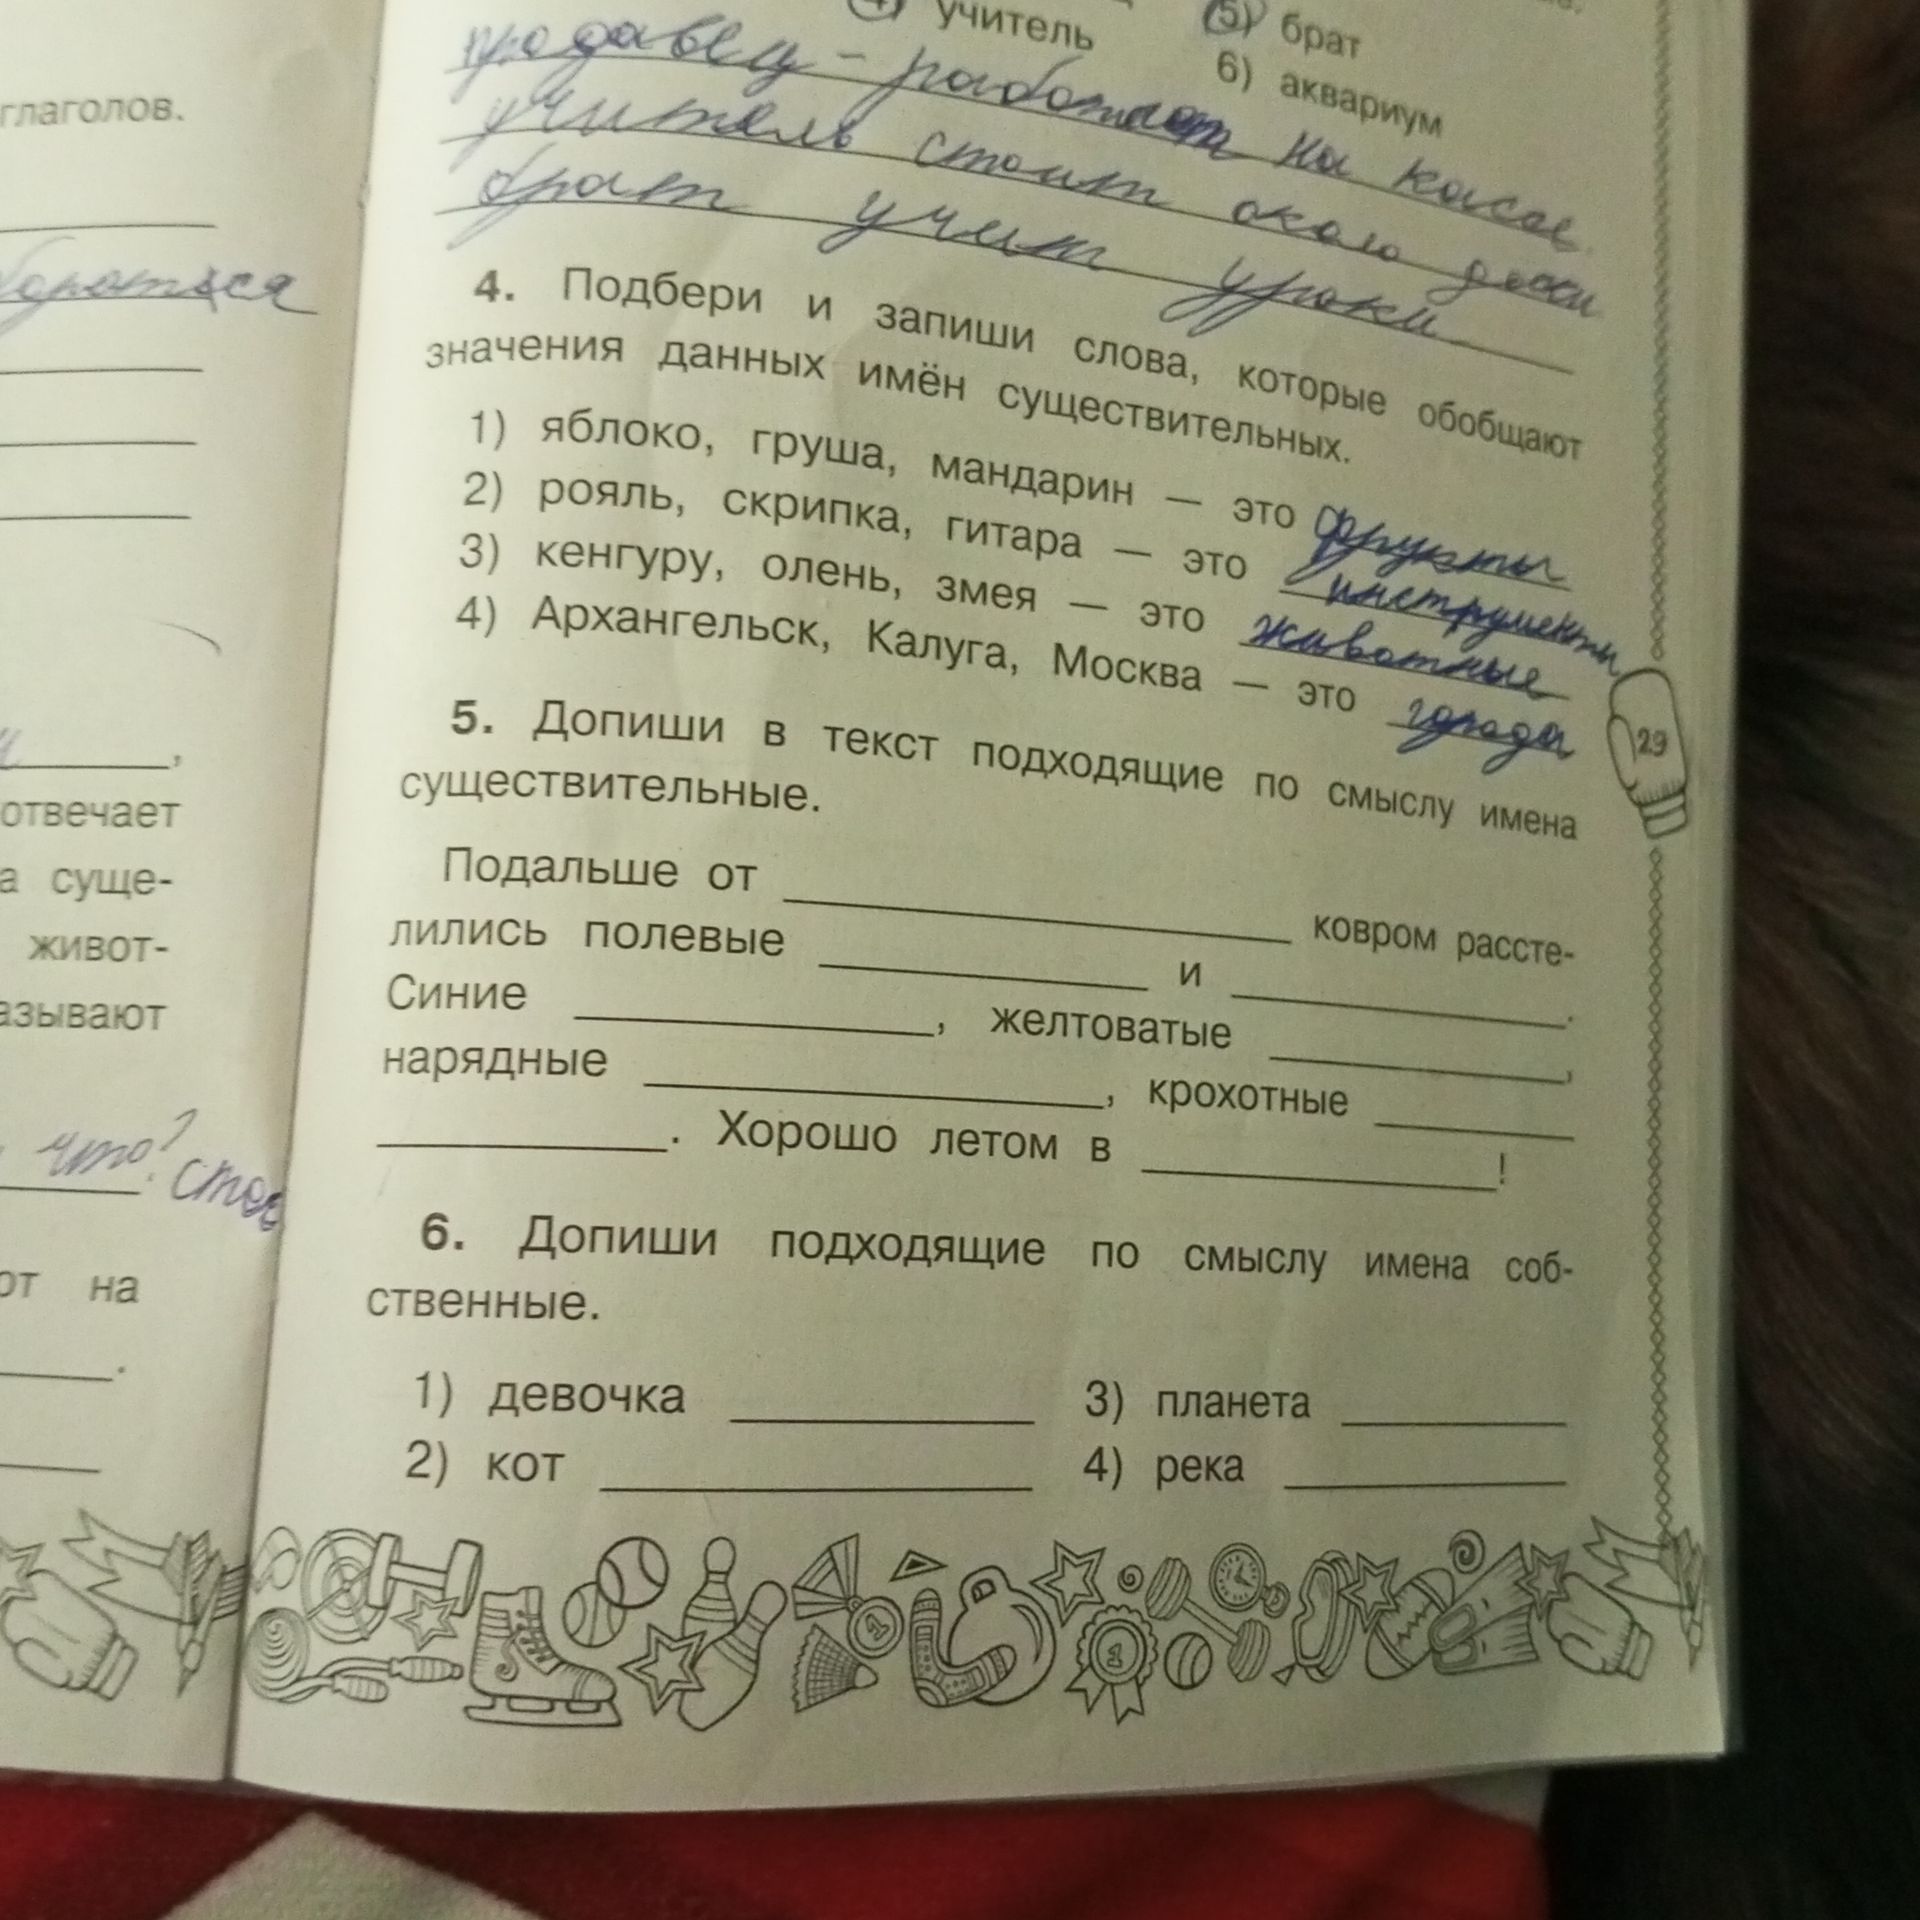 глаголов.
отвечает
а суще-
живот-
азывают
что?
от на
учитель 5) брат
6) аквариум
продавец - работает на кассе
учитель стоит около доски
брат учит уроки
4. Подбери и запиши слова, которые обобщают
значения данных имён существительных.
1) яблоко, груша, мандарин — это фрукты
2) рояль, скрипка, гитара — это инструменты
3) кенгуру, олень, змея — это животные
4) Архангельск, Калуга, Москва — это города
29
5. Допиши в текст подходящие по смыслу имена
существительные.
Подальше от ковром рассте-
лились полевые и .
Синие , желтоватые ,
нарядные , крохотные
. Хорошо летом в !
6. Допиши подходящие по смыслу имена соб-
ственные.
1) девочка 3) планета
2) кот 4) река
1
1